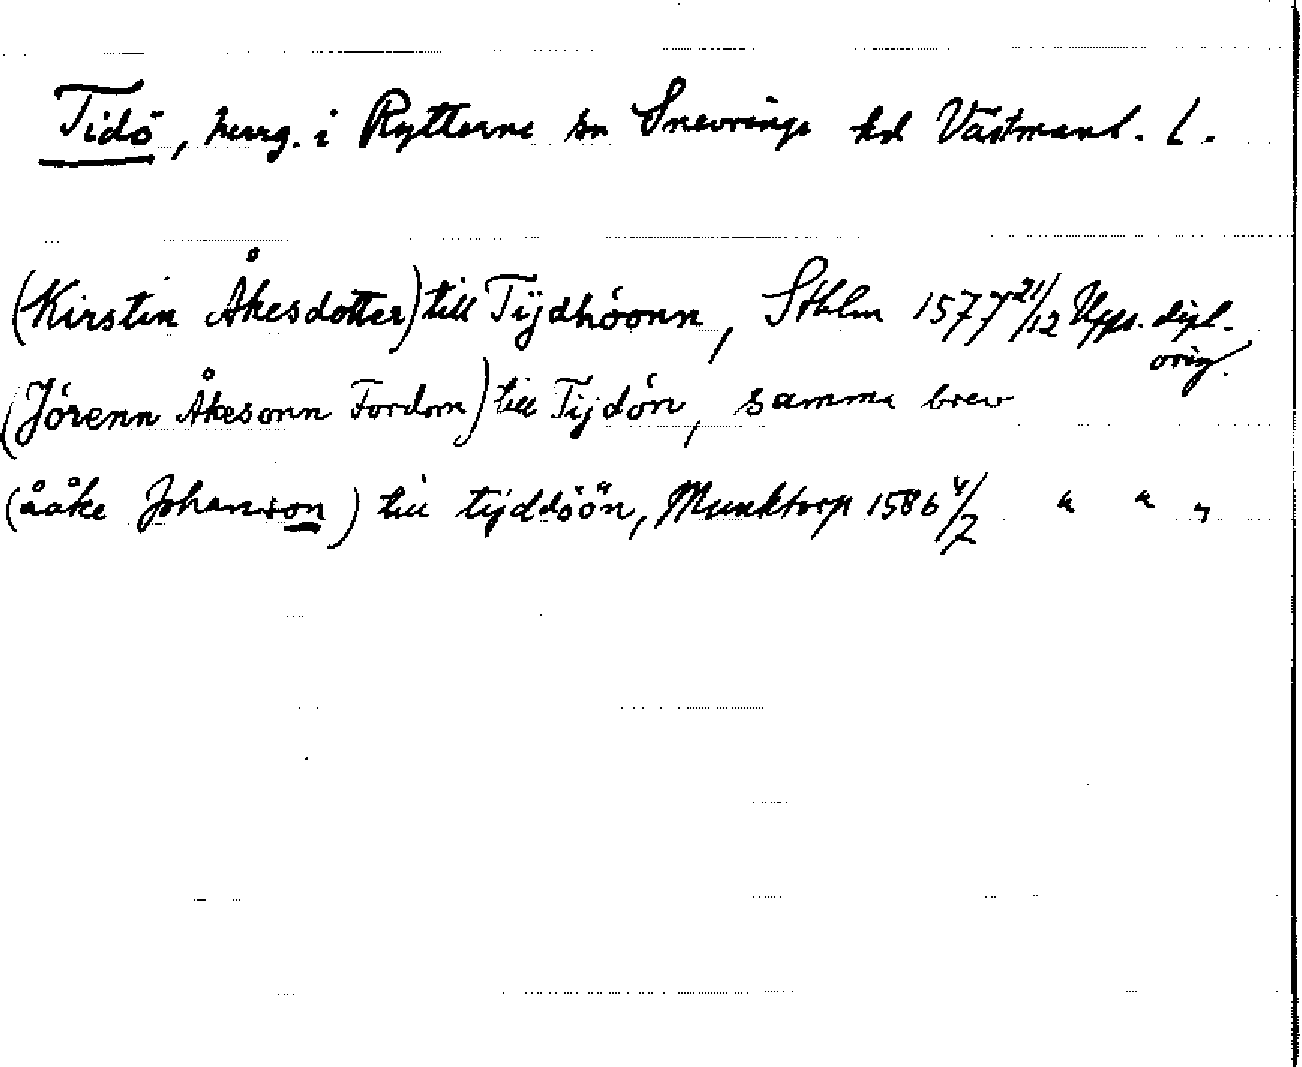 Tidö, herrg. i Rytterne sn Snevringe hd Västmanl. L.
(Kirstin Åkesdotter) till Tijdhóonn, Sthlm 1577 21/12 Upps. dipl. orig.
(Jórenn Åkesonn Fordom) till Tijdón, samma brev
(ååke Johansson) till tijddöön, Munktorp 1586 4/2 " " "